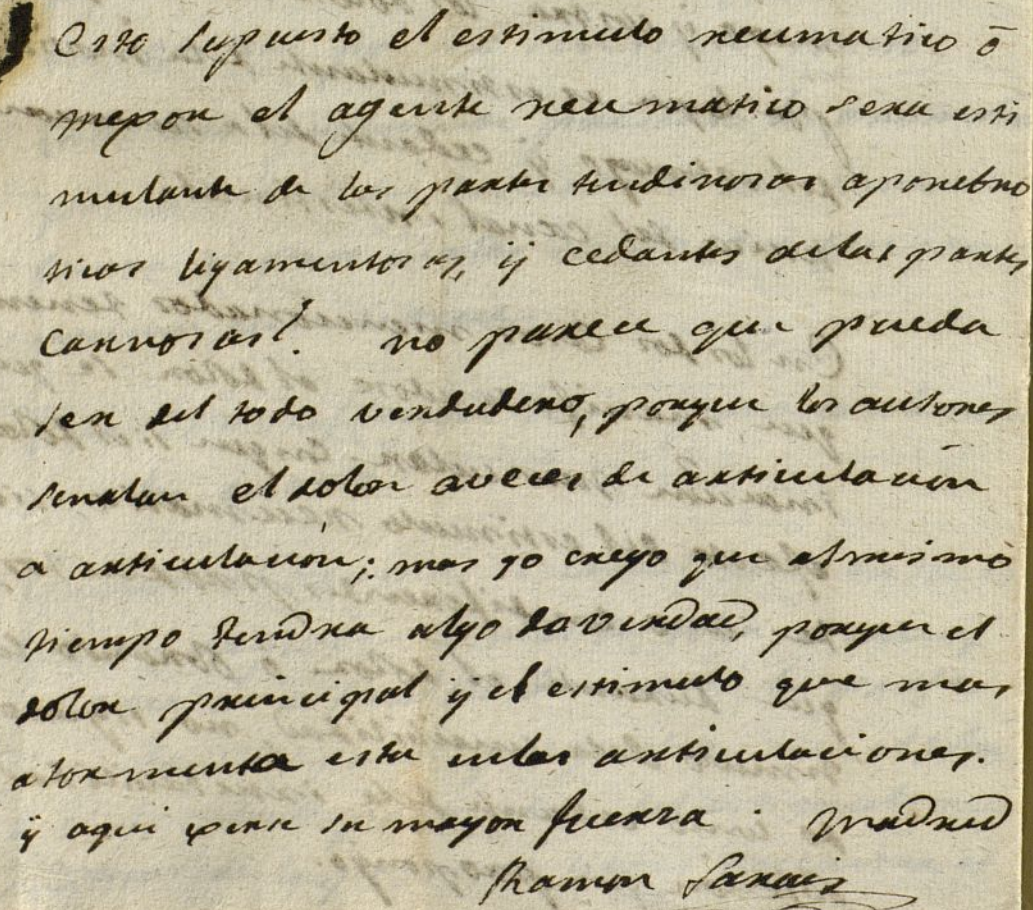 Esto supuesto el estimulo reumatico ó
mexor el agente reumatico sera esti
mulante de las partes tendinosas aponebro
ticas ligamentosas, ÿ cedantes delas partes
carnosas? no parece que pueda
ser del todo verdadero, porque los autores
señalan el dolor aveces de articulacion
a articulacion; mas yo creyo que almismo
tiempo tendra algo de verdad, porque el
dolor principal ÿ el estimulo que mas
atormenta esta enlas articulaciones.
ÿ aqui exerce su mayor fuerza. Madrid
Ramon